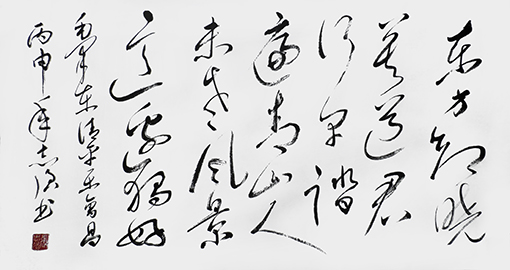 东方欲晓
莫道君
行早踏
遍青山人
未老风景
这边独好
毛泽东清平乐会昌
丙申年志书